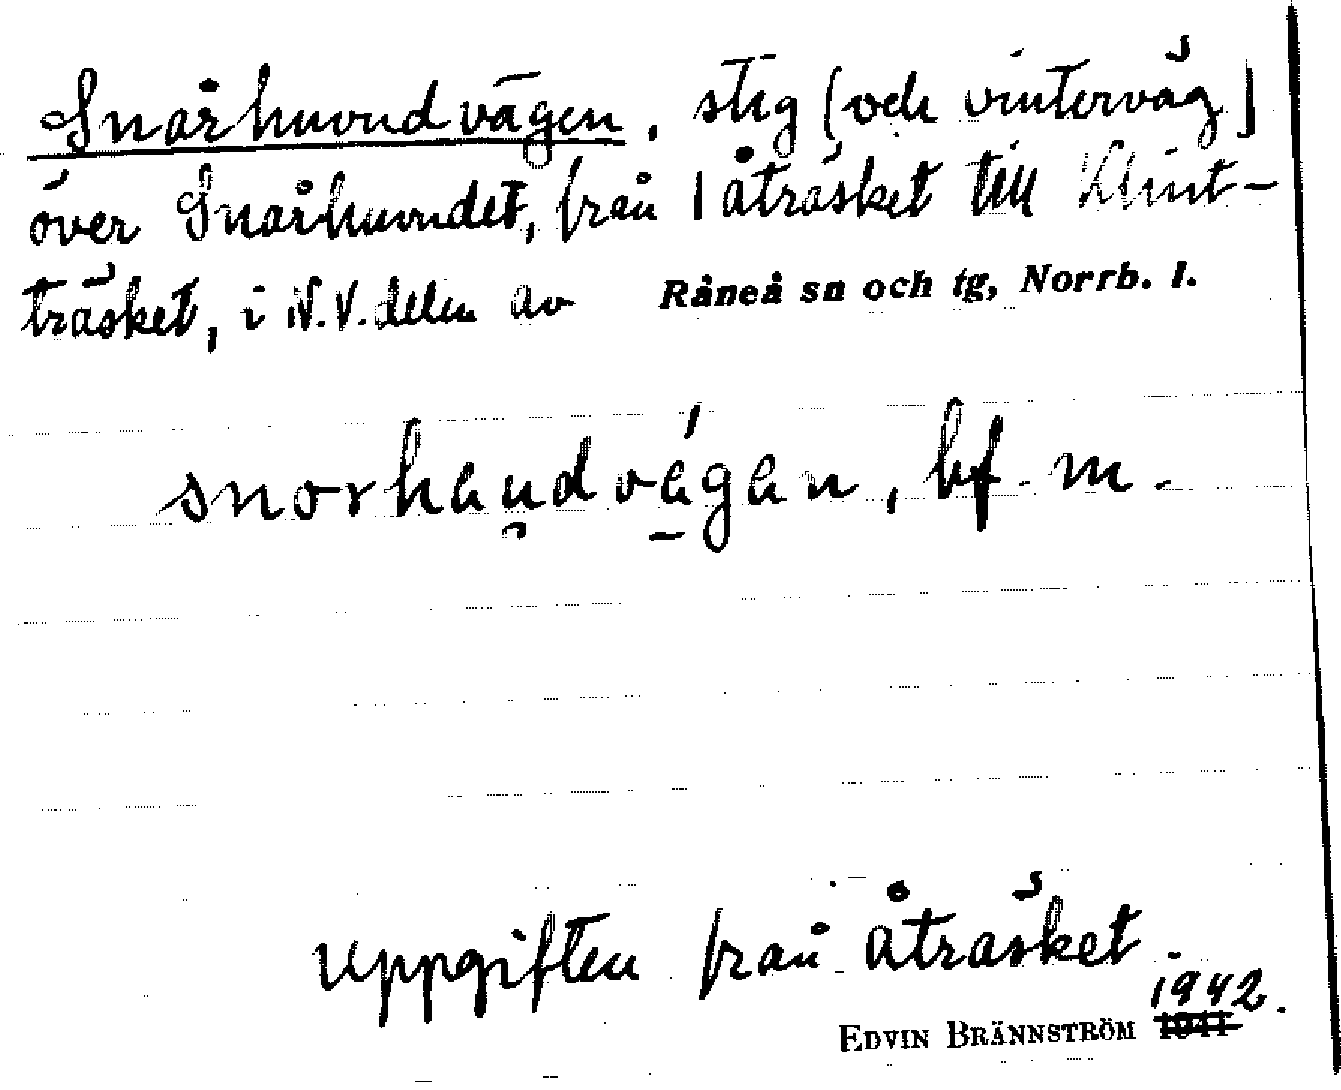 Snårhuvudvägen, stig (och vinterväg)
över Snårhuvudet, från Åträsket till Klint-
träsket, i N.V. delen av Råneå sn och tg, Norrb. l.
snorhau̯dvá̱gan, bf. m.
Uppgiften från Åträsket.
1942.
EDVIN BRÄNNSTRÖM 1941